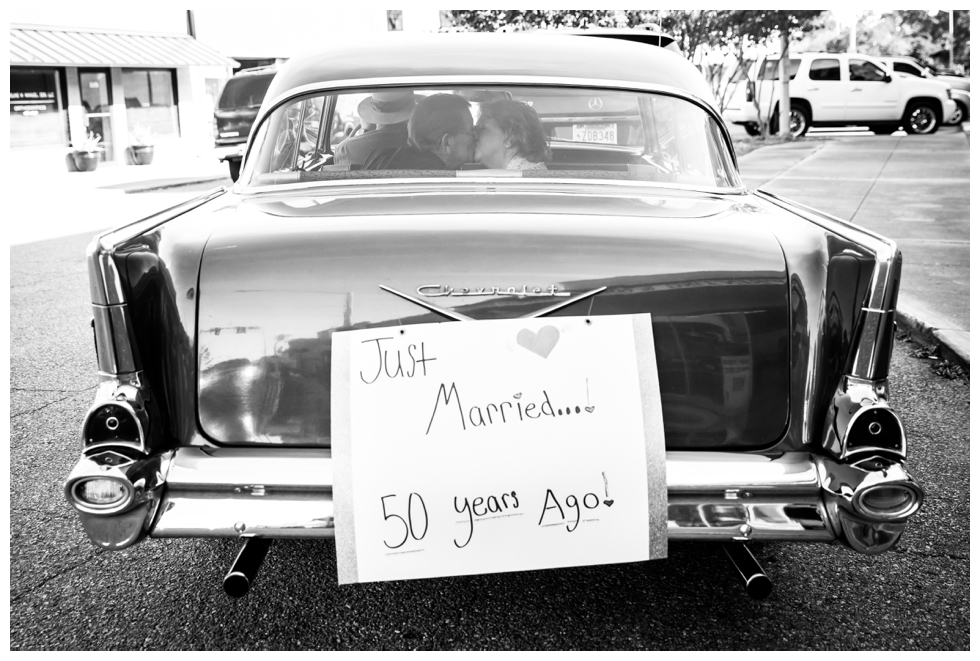 Chevrolet
Just
Married...!
50 years Ago!